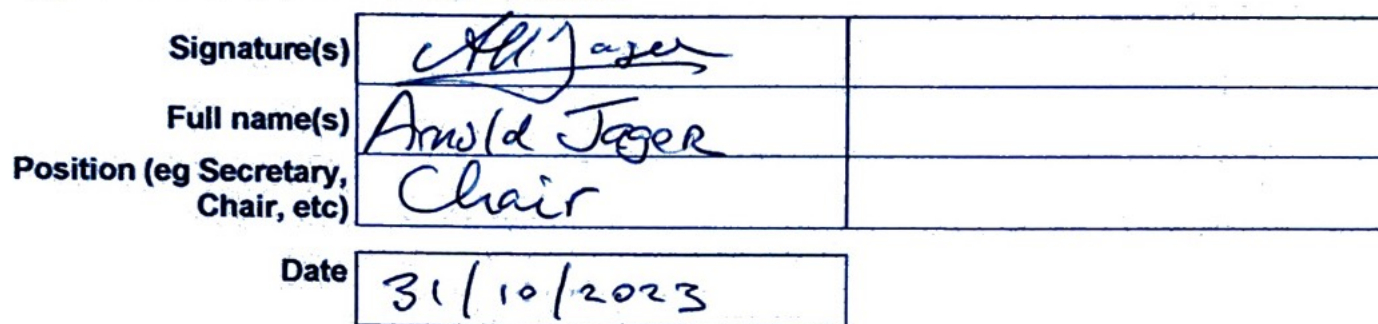 Signature(s) Jager
Full name(s) Arnold Jager
Position (eg Secretary, Chair
Chair, etc)
Date 31/10/2023